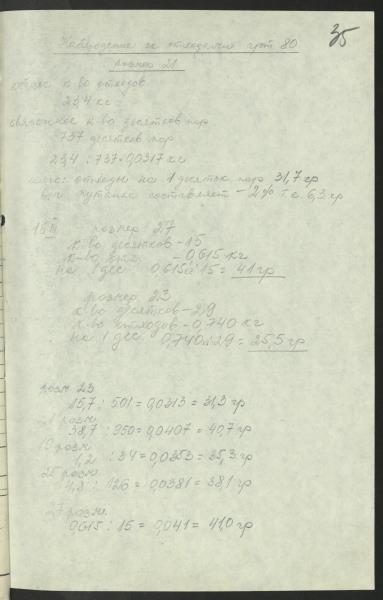 35
Наблюдение за отходами арт. 80
размер 21
общее к-во отходов
23,4 кг
связанное к-во десятков пар
737 десятков пар
23,4 : 737 = 0,0317 кг
отходы на 1 десяток пар 31,7 гр
путанка составляет - 2% т.е. 6,3 гр
размер 27
к-во десятков - 15
к-во - 0,615 кг
на 1 дес 0,615 : 15 = 41 гр
размер 23
к-во десятков - 29
к-во отходов - 0,740 кг
на 1 дес 0,740 : 29 = 25,5 гр
разм 23
15,7 : 501 = 0,0313 = 31,3 гр
21 разм
38,7 : 950 = 0,0407 = 40,7 гр
19 разм
1,2 : 34 = 0,0353 = 35,3 гр
25 разм
4,8 : 126 = 0,0381 = 38,1 гр
27 разм
0,615 : 15 = 0,041 = 41,0 гр